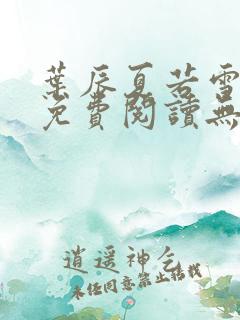 葉辰夏若雪
免費閱讀無
逍遥神醫
未經同意禁止轉載